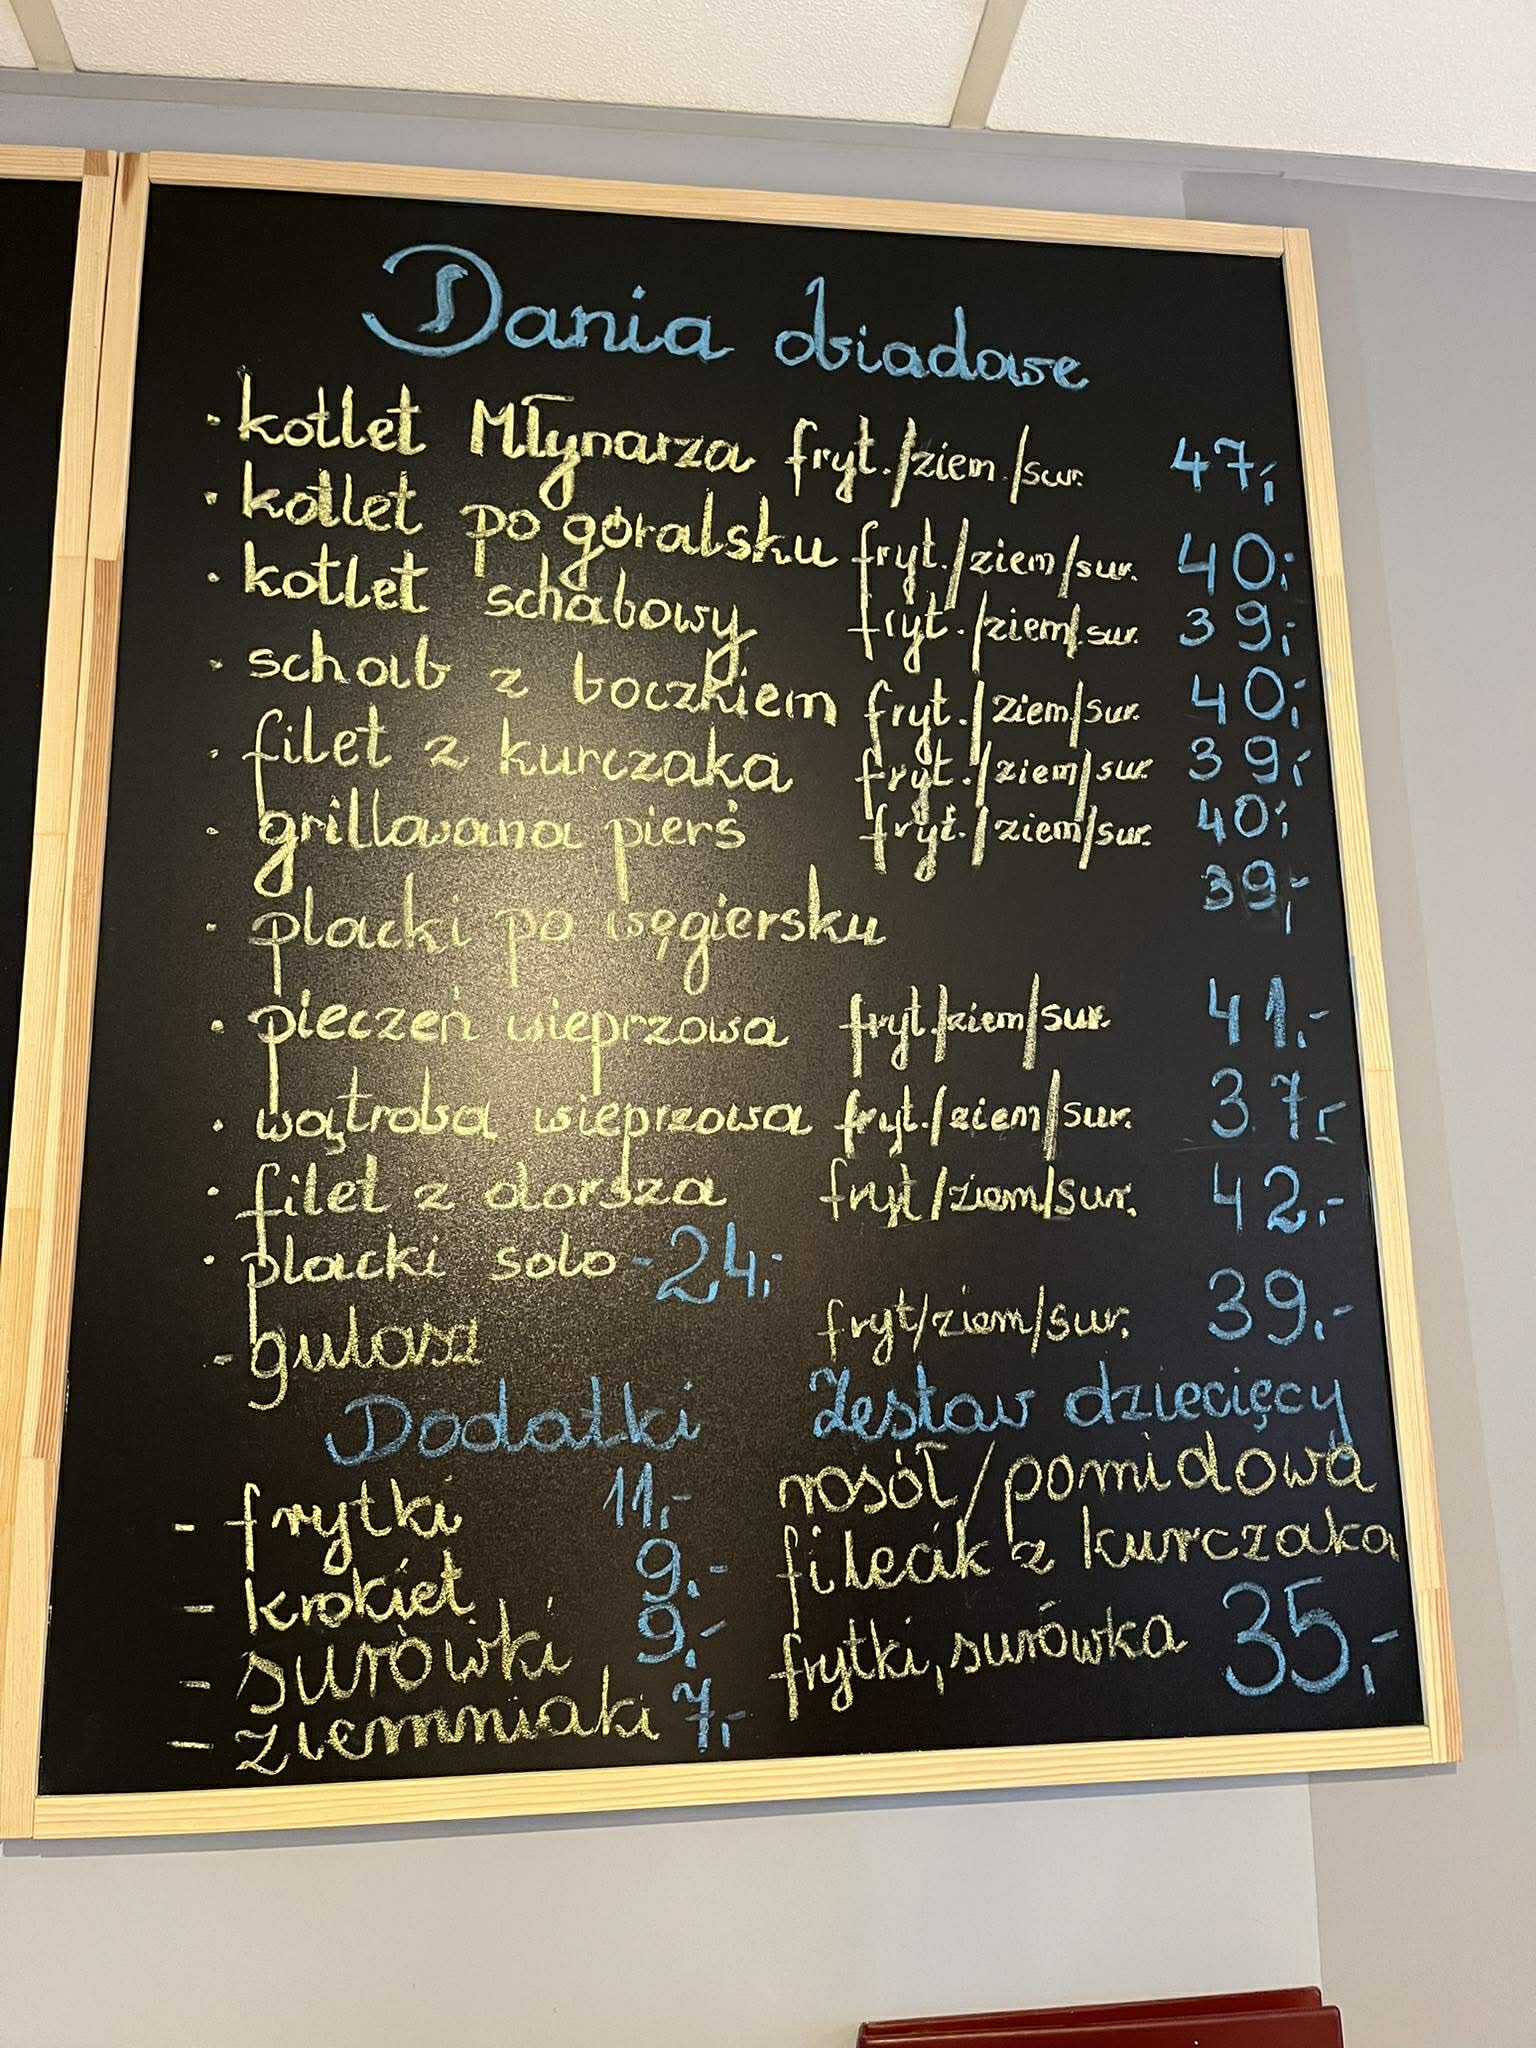 Dania obiadowe
· kotlet Młynarza fryt./ziem./sur. 47,-
· kotlet po góralsku fryt./ziem/sur. 40,-
· kotlet schabowy fryt./ziem/sur. 39,-
· schab z boczkiem fryt./ziem/sur. 40,-
· filet z kurczaka fryt./ziem/sur. 39,-
· grillowana pierś fryt./ziem/sur. 40,-
· placki po węgiersku 39,-
· pieczeń wieprzowa fryt./ziem/sur. 41,-
· wątroba wieprzowa fryt./ziem/sur. 37,-
· filet z dorsza fryt/ziem/sur. 42,-
· placki solo - 24,-
- gulasz fryt/ziem/sur. 39,-
Dodatki
- frytki 11,-
- krokiet 9,-
- surówki 9,-
- ziemniaki 7,-
Zestaw dziecięcy
rosół/pomidowa
filecik z kurczaka
frytki, surówka 35,-